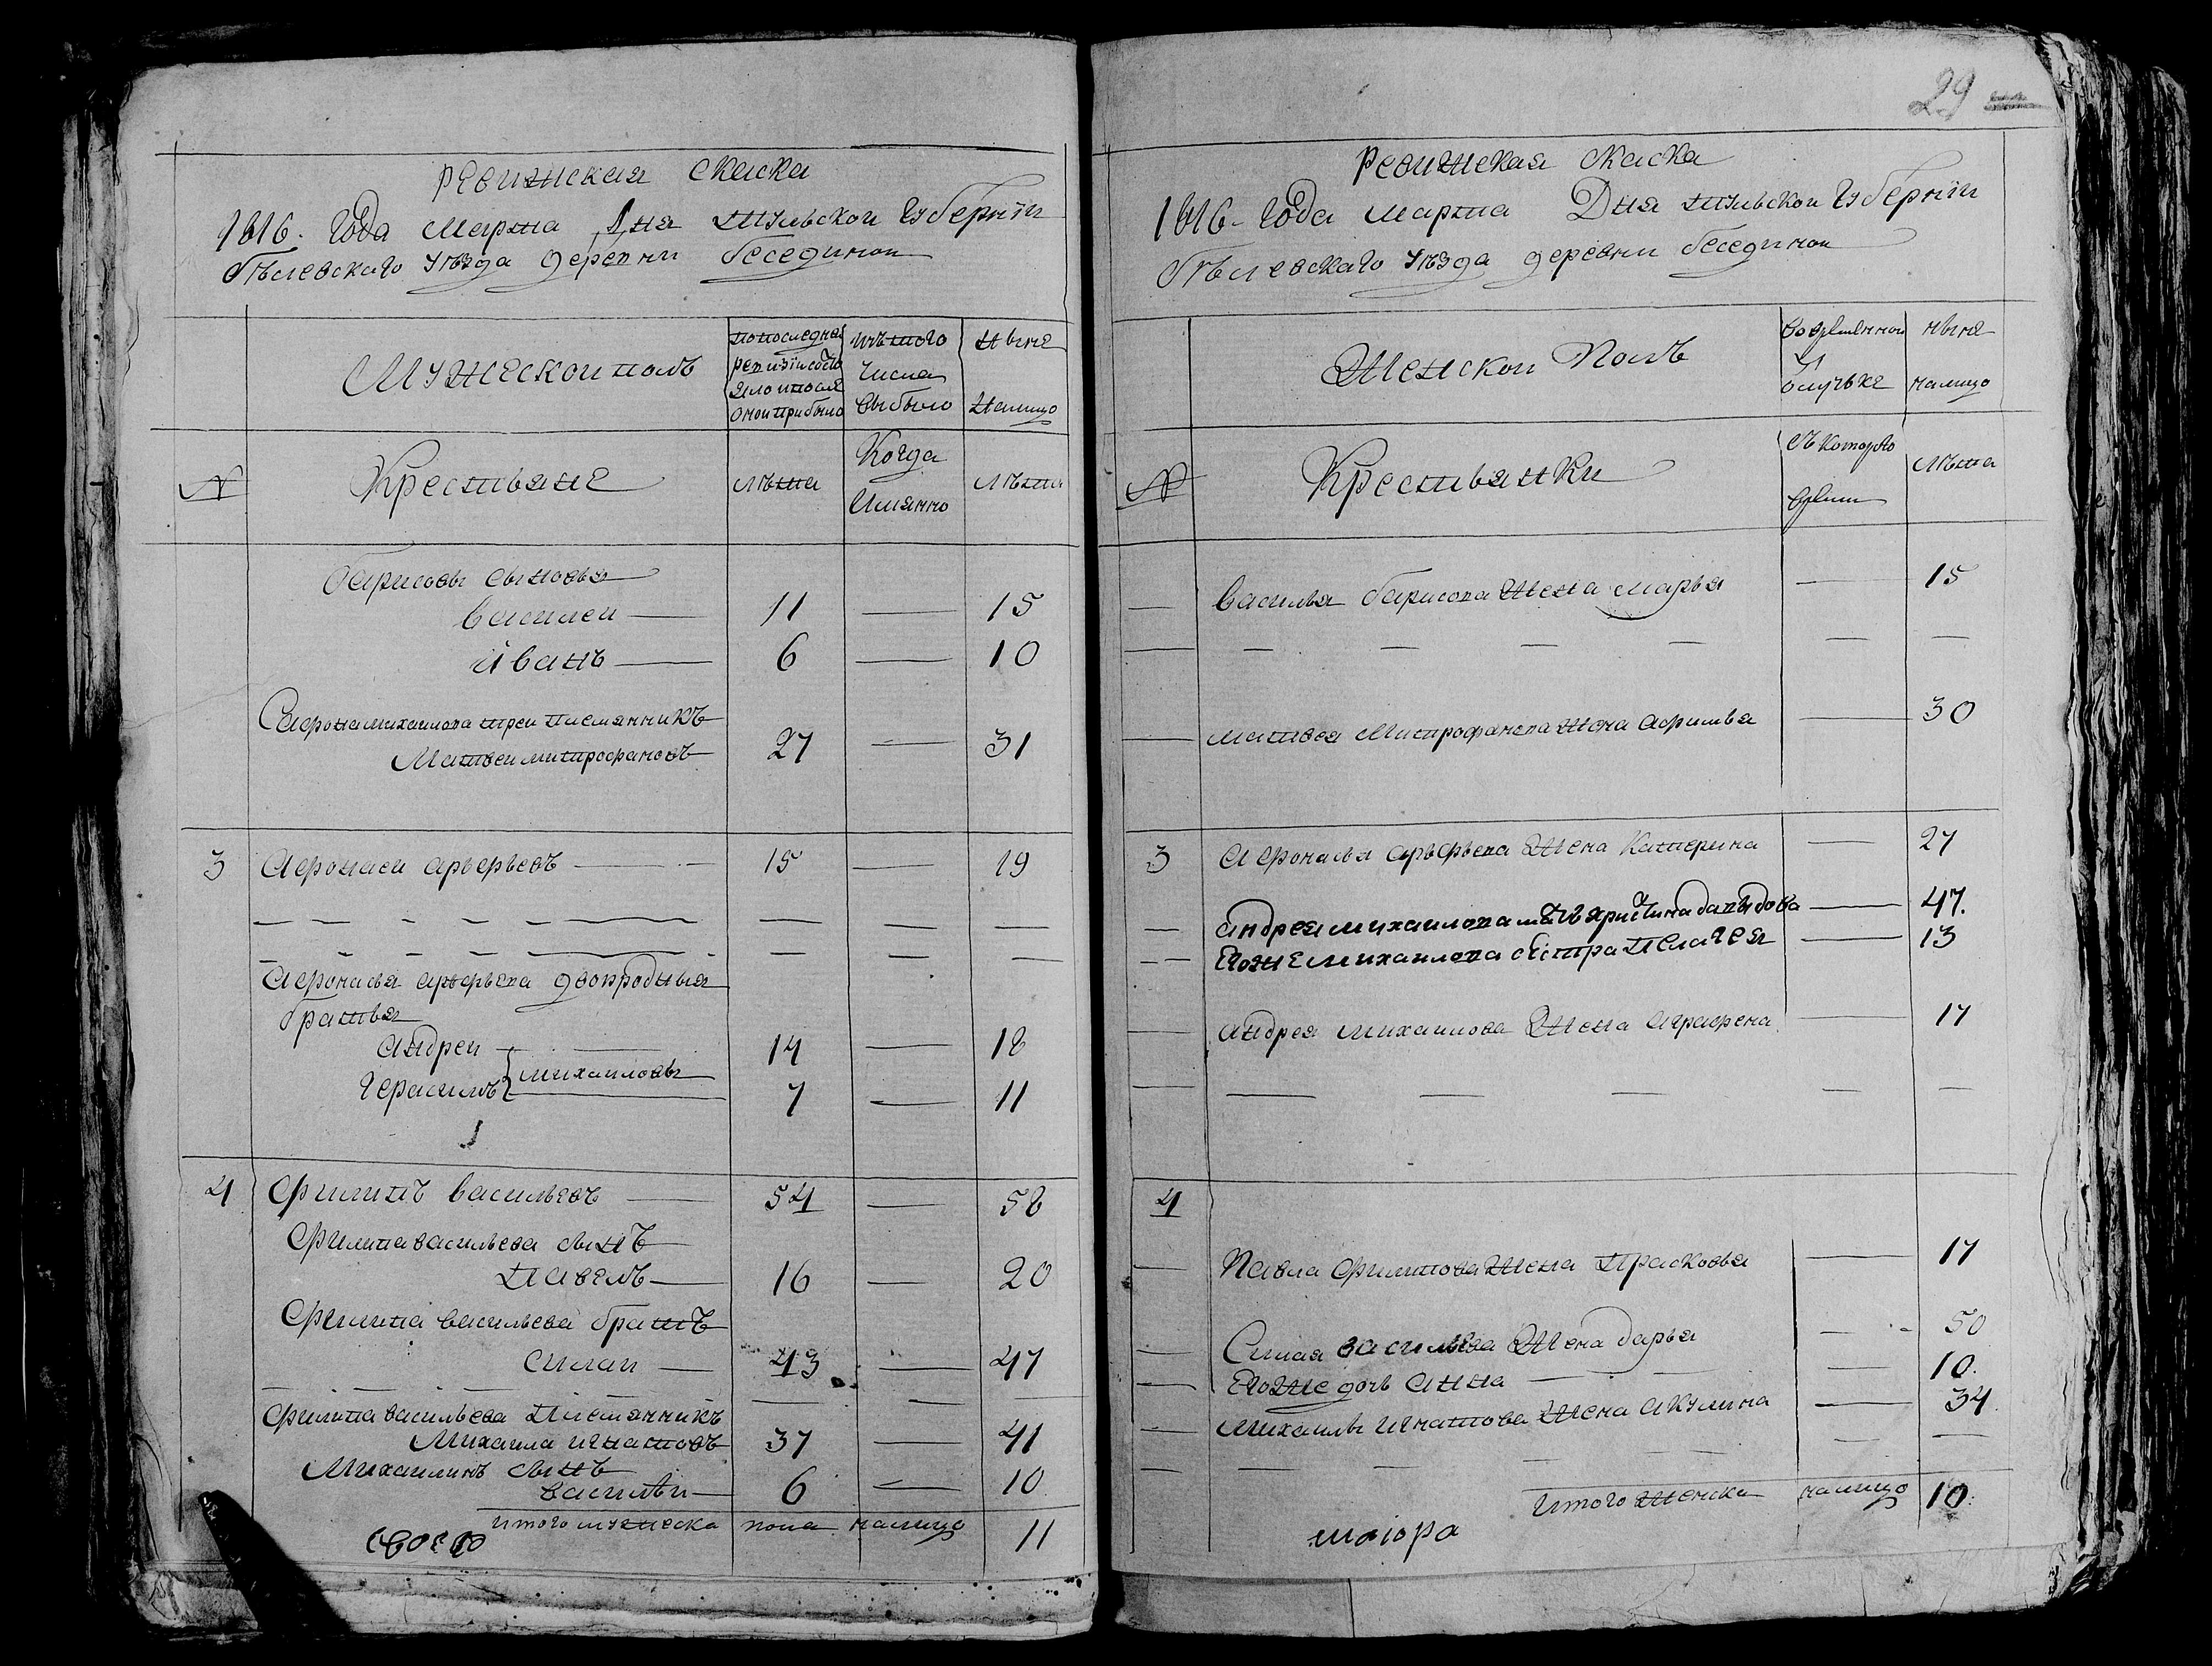 29
ревижская скаска
1816. года марта дня тульской губернїи
бѣлевскаго уѣзда деревни бесединой
Мужескои полъ
по последней ревизїи состояло и после оной прибыло
изъ того числа выбыло
ныне налицо
№
Крестьяне
лѣта
Когда имянно
лѣта
барисовы сыновья
василеи — 11 — 15
иванъ — 6 — 10
Сафрона михаилова трей племянникъ
Матвеи митрофановъ — 27 — 31
3 Афонасеи арьфьевъ — 15 — 19
Афонасья арьфьева двоюродныя
братья
андреи — 14 — 18
михаиловы
герасимъ 7 — 11
4 Филипъ васильевъ — 54 — 58
Филипа васильева сынъ
павелъ — 16 — 20
Филипа васильева братъ
силаи — 43 — 47
Филипа васильева племянникъ
Михаила игнатовъ 37 — 41
Михаилинъ сынъ
василеи — 6 — 10
итого мужеска пола налицо 11
Ревижская скаска
1816. года марта дня тульской губернїи
бѣлевскаго уѣзда деревни бесединой
Женскои Полъ
во временной отлучке
ныне налицо
№
Крестьянки
съ котораго время
лѣта
— василья барисова жена марья — 15
— матвея митрофанова жена афимья — 30
3 афонасья арьфьева жена катерина — 27
— андрея михаилова мать христина давыдова — 47.
— — его же михаилова сестра пелагея — 13
— андрея михаилова жена аграфена — 17
4
— Павла филипова жена прасковья — 17
— Силая васильева жена дарья — 50
— его же дочь анна — 10.
— михаилы игнатова жена акулина — 34
итого женска налицо 10.
маиора